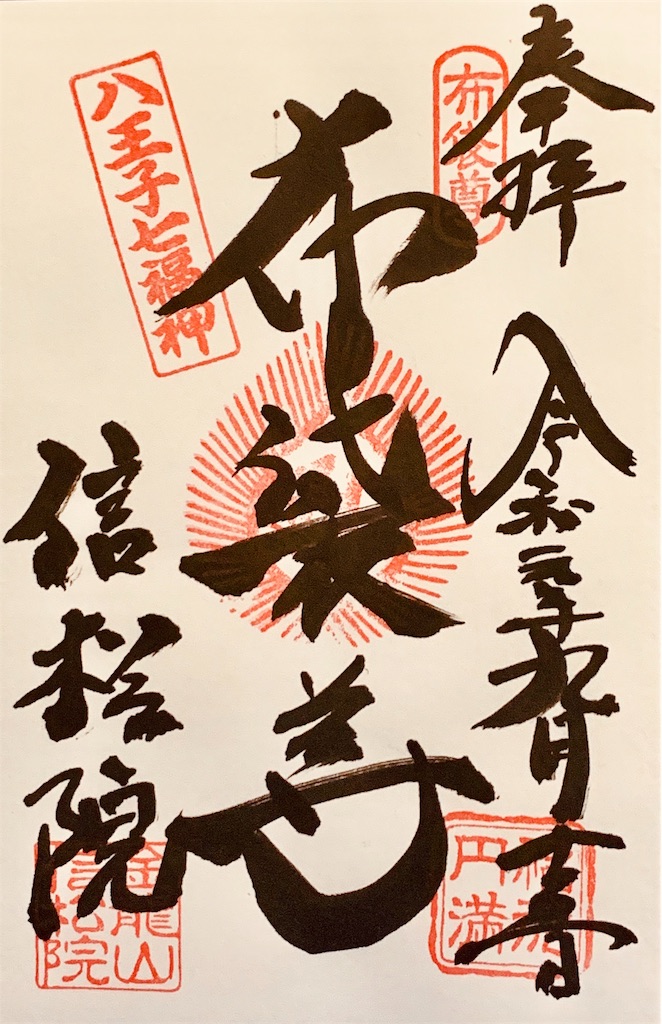 奉拝
令和元年九月
布袋尊
円満
布袋尊
八王子七福神
信松院
金龍山
信松院